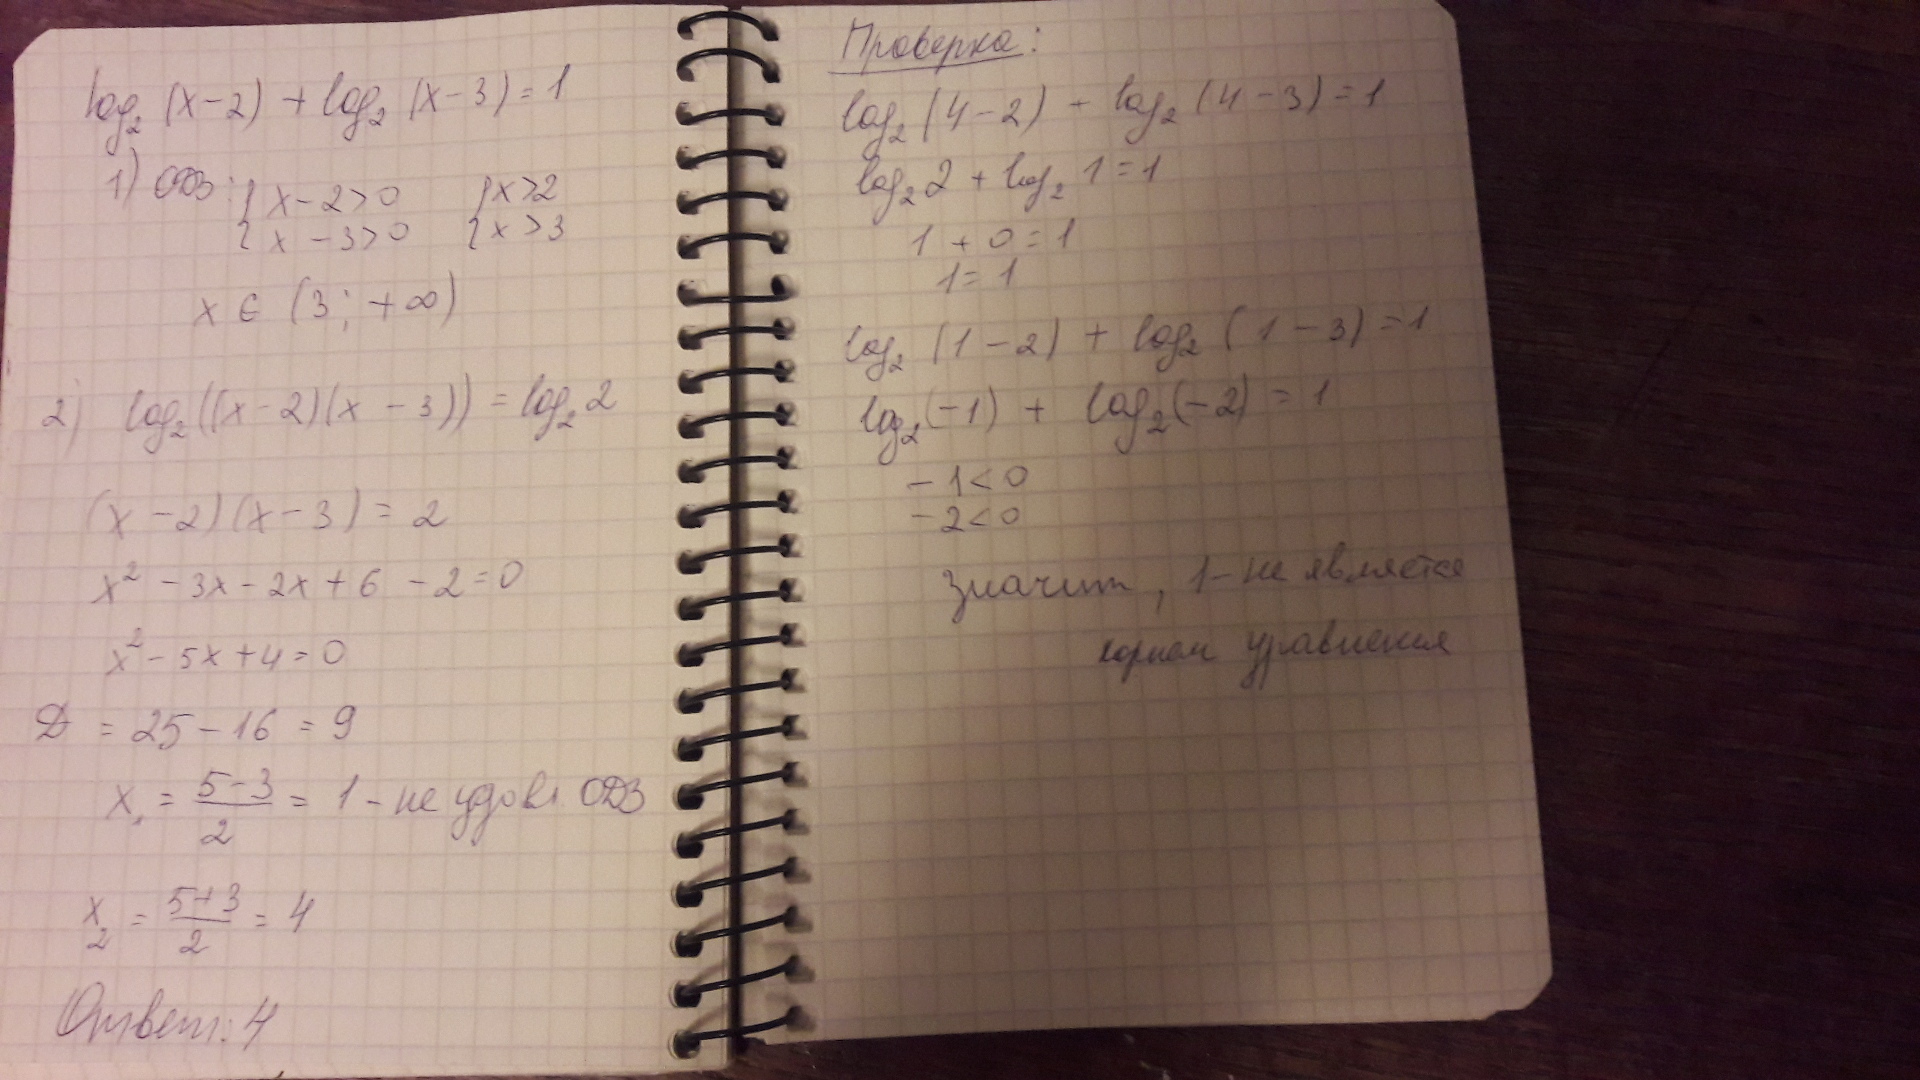 log₂ (x-2) + log₂ (x-3) = 1
1) ОДЗ: { x-2>0 { x>2
{ x-3>0 { x>3
x ∈ (3; +∞)
2) log₂((x-2)(x-3)) = log₂2
(x-2)(x-3) = 2
x² - 3x - 2x + 6 - 2 = 0
x² - 5x + 4 = 0
D = 25 - 16 = 9
x₁ = (5-3)/2 = 1 - не удовл. ОДЗ
x₂ = (5+3)/2 = 4
Ответ: 4
Проверка:
log₂(4-2) + log₂(4-3) = 1
log₂2 + log₂1 = 1
1 + 0 = 1
1 = 1
log₂(1-2) + log₂(1-3) = 1
log₂(-1) + log₂(-2) = 1
-1<0
-2<0
Значит, 1 - не является
корнем уравнения